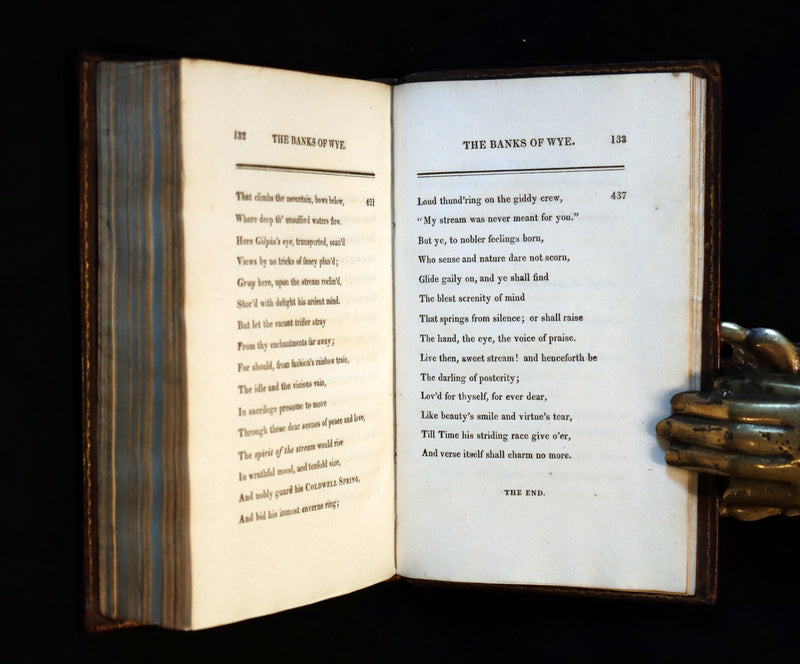 132 THE BANKS OF WYE.
That climbs the mountain, bows below, 421
Where deep th' unsullied waters flow.
Here Gilpin's eye, transported, scan'd
Views by no tricks of fancy plan'd;
Gray here, upon the stream reclin'd,
Stor'd with delight his ardent mind.
But let the vacant trifler stray
From thy enchantments far away;
For should, from fashion's rainbow train,
The idle and the vicious vain,
In sacrilege presume to move
Through these dear scenes of peace and love,
The spirit of the stream would rise
In wrathful mood, and tenfold size,
And nobly guard his COLDWELL SPRING,
And bid his inmost caverns ring;
THE BANKS OF WYE. 133
Loud thund'ring on the giddy crew, 437
"My stream was never meant for you."
But ye, to nobler feelings born,
Who sense and nature dare not scorn,
Glide gaily on, and ye shall find
The blest serenity of mind
That springs from silence; or shall raise
The hand, the eye, the voice of praise.
Live then, sweet stream! and henceforth be
The darling of posterity;
Lov'd for thyself, for ever dear,
Like beauty's smile and virtue's tear,
Till Time his striding race give o'er,
And verse itself shall charm no more.
THE END.